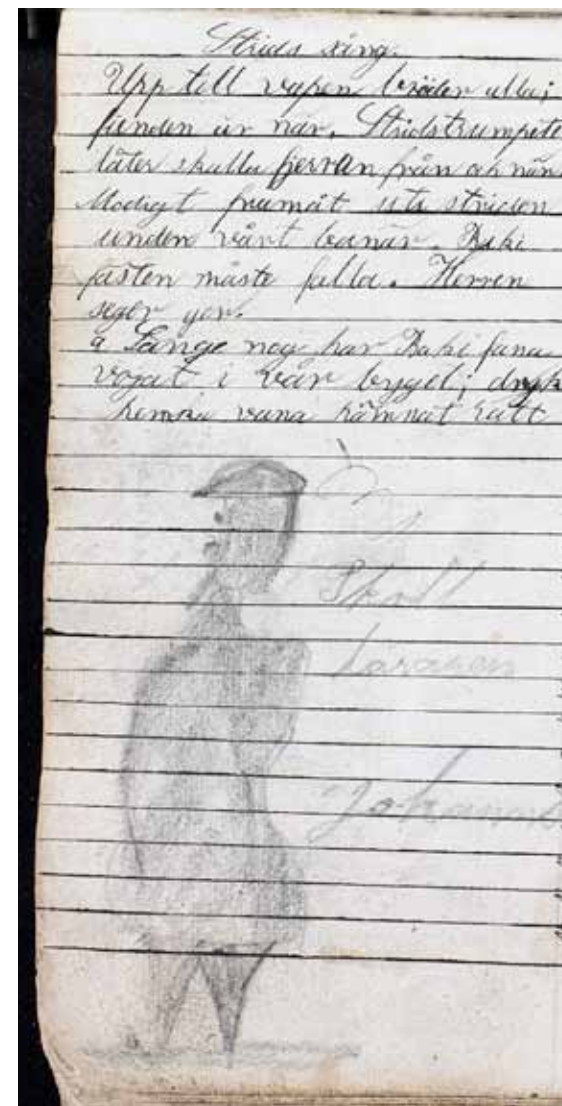 Strids sång.
Upp till vapen bröder alla;
fienden är när. Stridstrumpete
låter skalla fjerran från och när
Modigt framåt uti striden
under vårt banér. Baki
fästen måste falla. Herren
seger ger.
a Länge nog har Baki fana
vajat i vår bygd; dryk
vana hämnat
Skoll
Lararen
Johannes